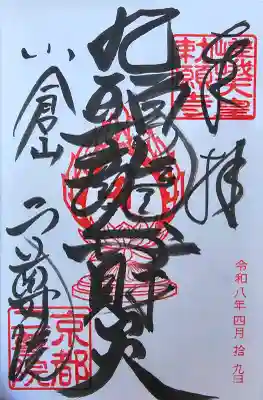 奉拝
嵯峨天皇
勅願寺
九頭龍弁財天
小倉山
二尊院
京都
二尊院
令和八年四月拾九日